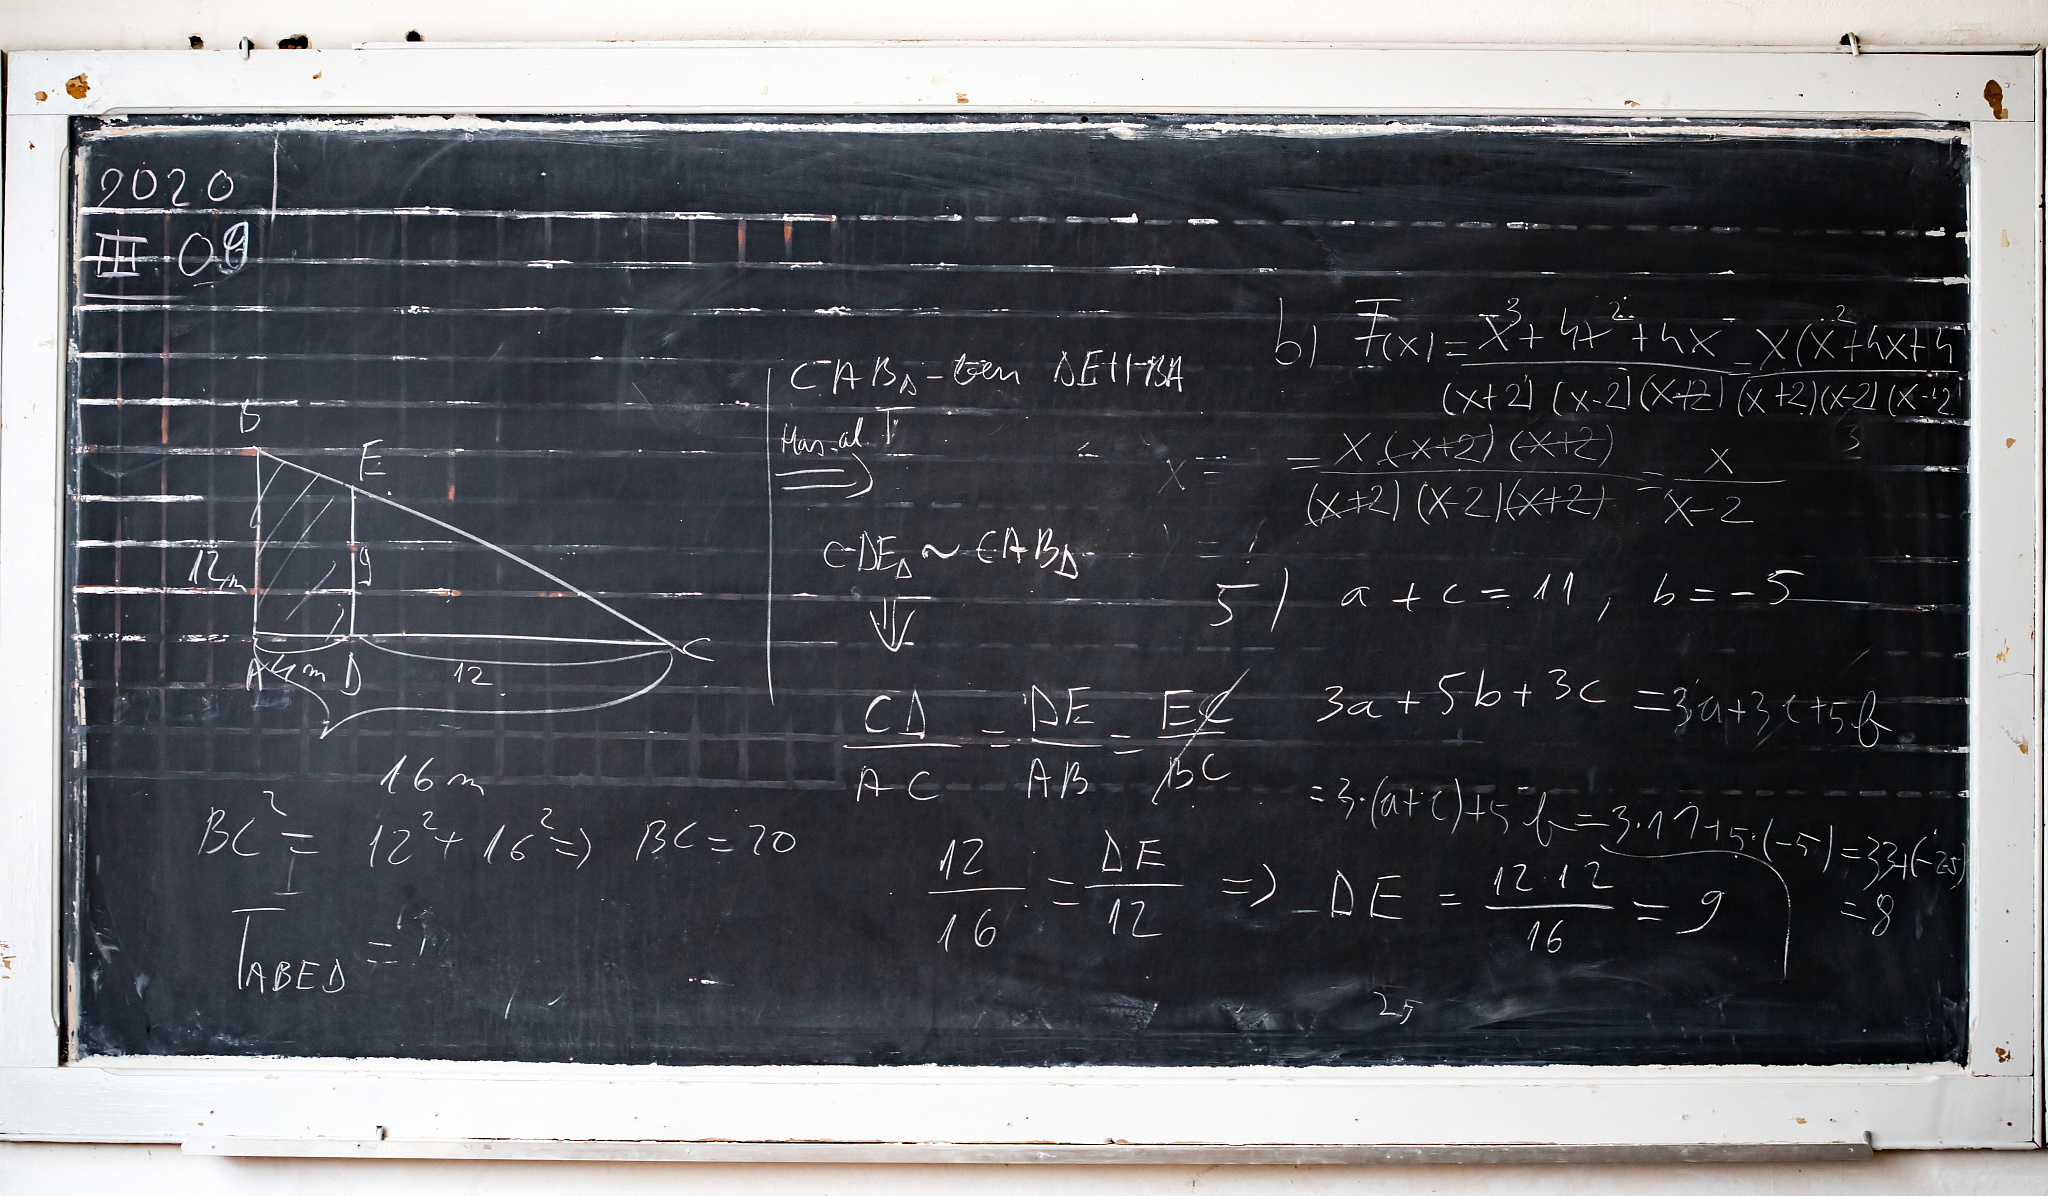 2020
III 09
B
E
12m
9
A 4m D
12
C
16 m
BC² = 12² + 16² ⇒ BC = 20
T_ABED = ?
CAB△ - DE || BA
Has. al. T
⇒
CDE△ ~ CAB△
⇓
CD/AC = DE/AB = EC/BC
12/16 = DE/12 ⇒ DE = 12·12/16 = 9
b) F(x) = x³+4x²+4x/(x+2)(x-2)(x+2) = x(x²+4x+4/(x+2)(x-2)(x+2)
= x(x+2)(x+2)/(x+2)(x-2)(x+2) = x/x-2
5) a + c = 11, b = -5
3a + 5b + 3c = 3a+3c+5b
= 3·(a+c)+5·b = 3·11+5·(-5) = 33+(-25)
= 8
25